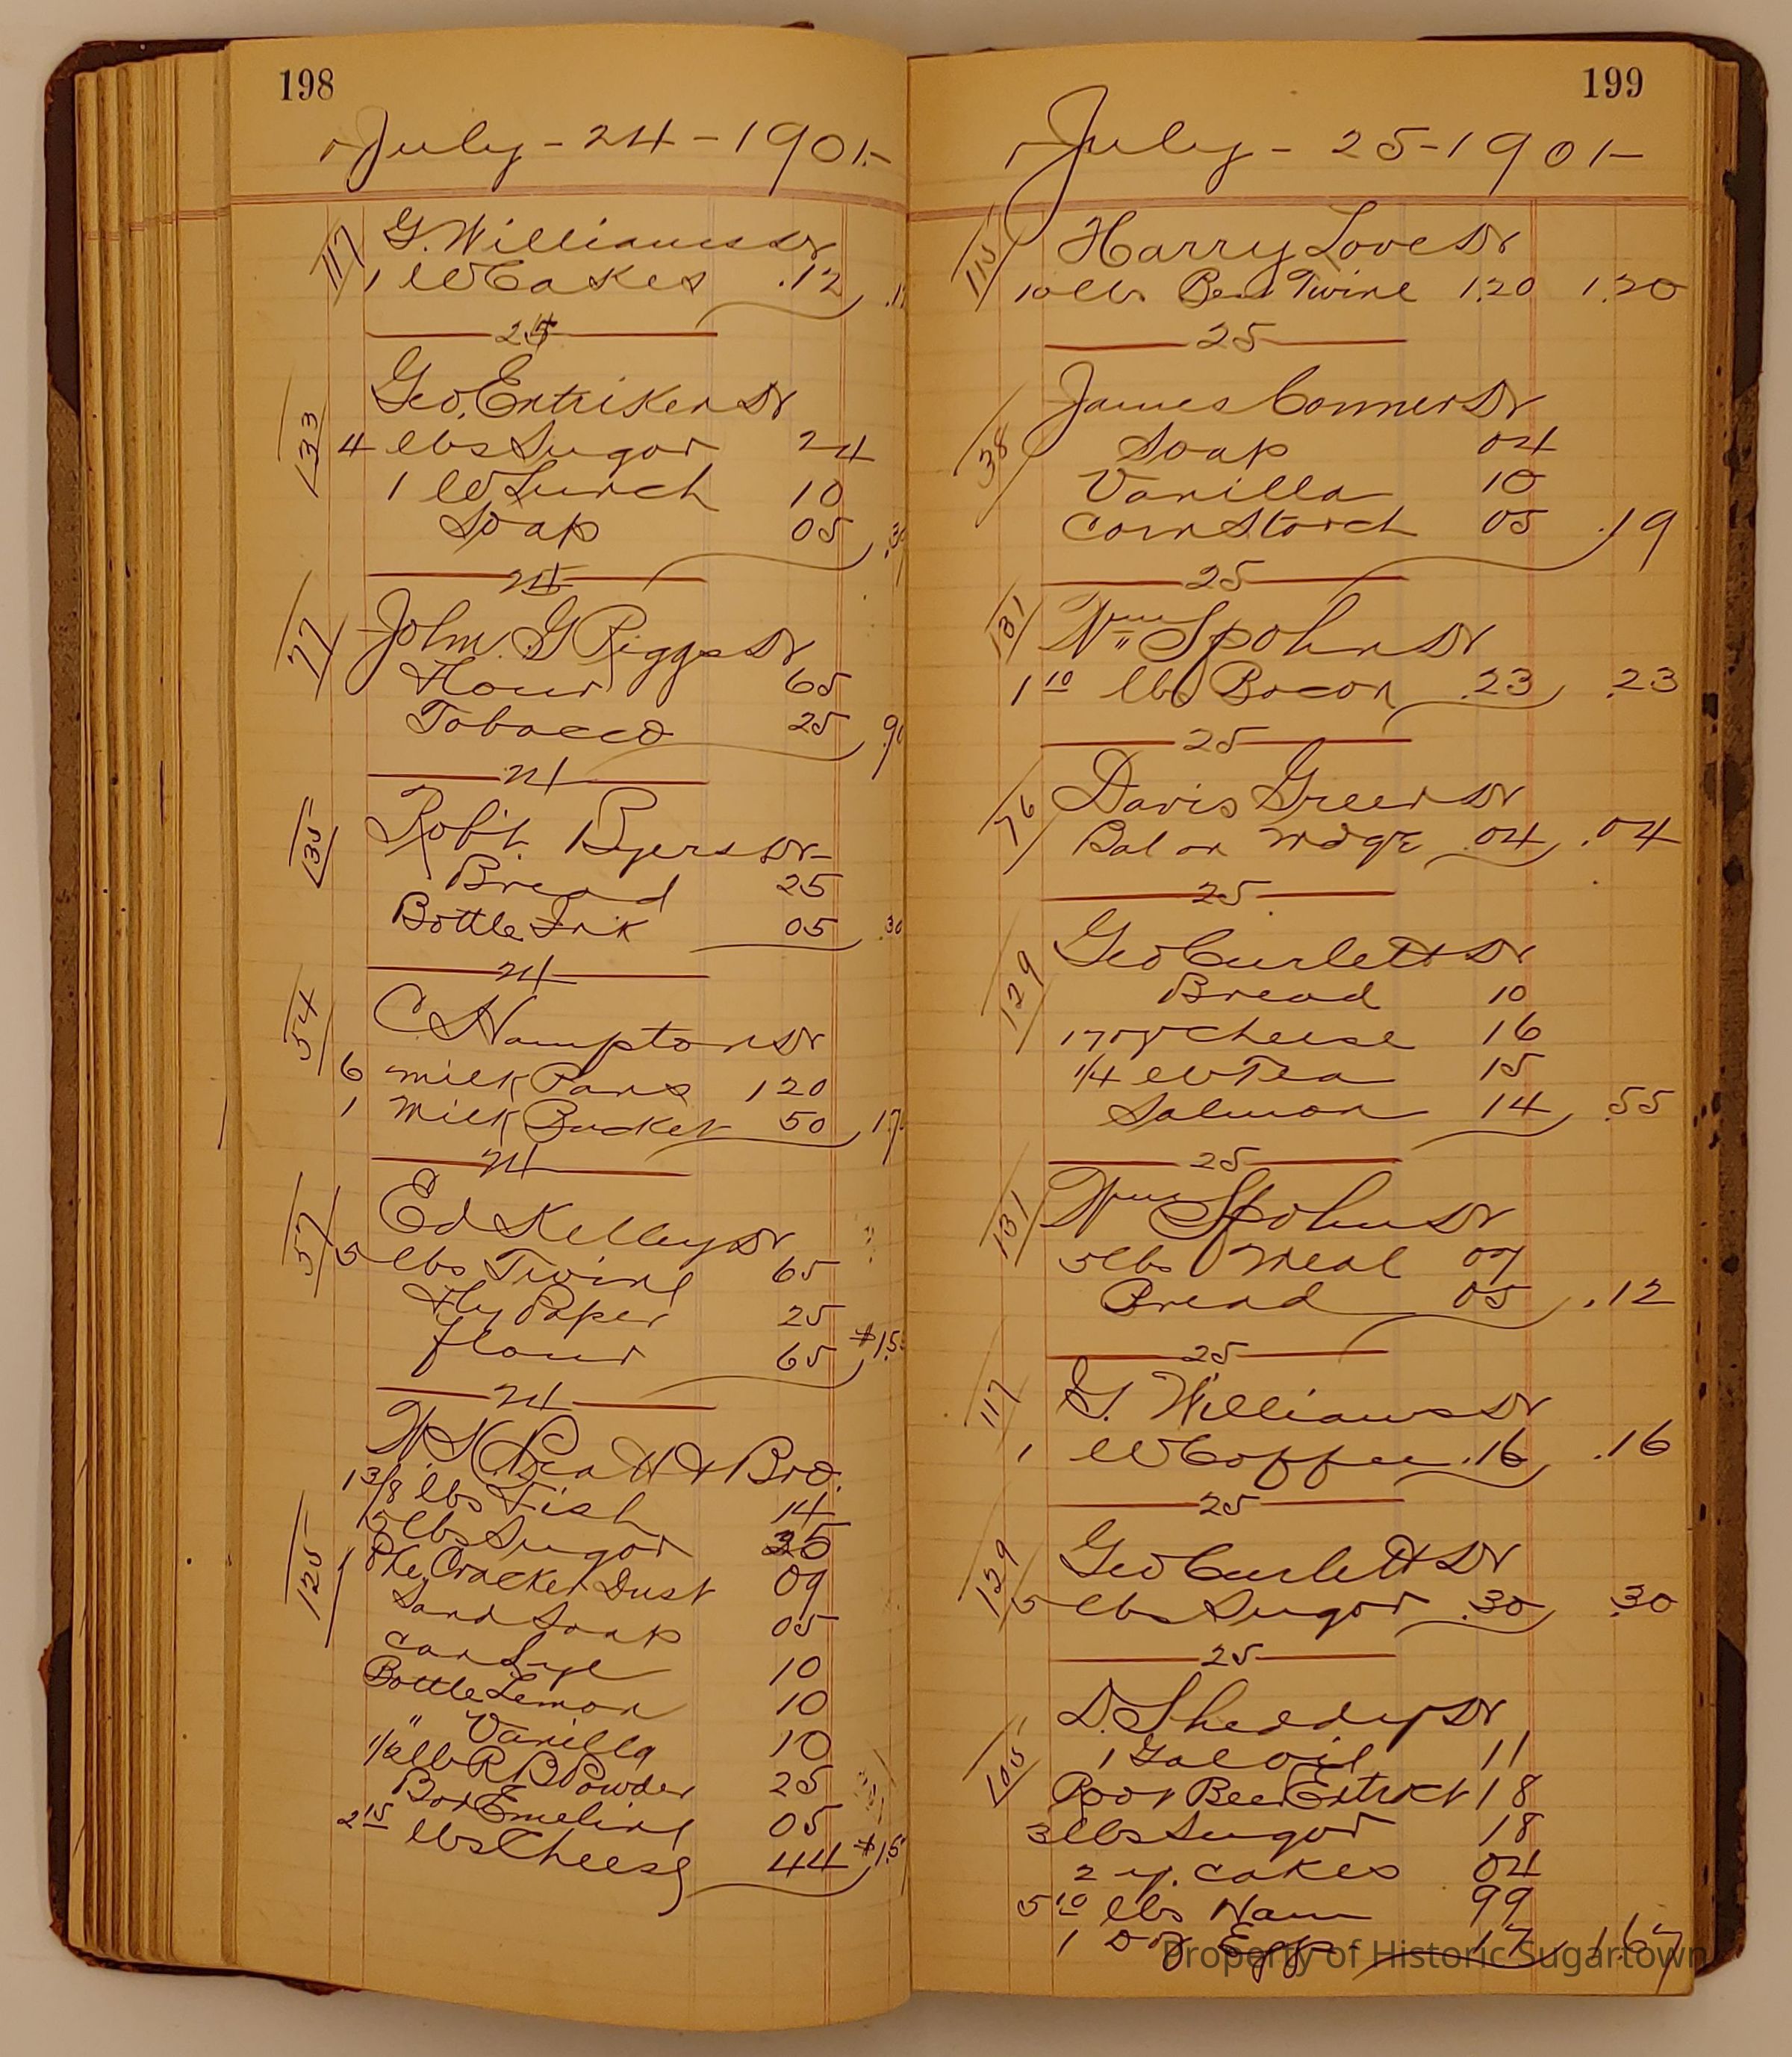 198
July - 24 - 1901-
117
G. Williams Dr
1 lb Cakes .12
24
133
Geo. Entriken Dr
4 lbs Sugar 24
1 lb Lunch 10
Soap 05
24
77
John G Riggs Dr
Flour 65
Tobacco 25
24
135
Rob't. Byers Dr-
Bread 25
Bottle Ink 05 .30
24
54
C Hampton Dr
6 milk Pans 120
1 Milk Bucket 50
24
57
Ed Kelley Dr
5 lbs Twine 65
Fly Paper 25
flour 65
24
125
Bro.
1 3/8 lbs Fish 14
lbs Sugar
1 Pkg Cracker Dust 09
Sand Soap 05
can Lye 10
Bottle Lemon 10
" Vanilla 10
1/2 lb R B Powder 25
Box 05
2 15 lbs Cheese 44
199
July - 25 - 1901-
115
Harry Love Dr
10 lbs Twine 1.20 1.20
25
38
James Conner Dr
Soap 04
Vanilla 10
Corn Starch 05 .19
25
131
Wm Spohn Dr
1 10 lbs Bacon .23 .23
25
76
Davis Green Dr
Bal on mdge .04 .04
25
129
Geo Curlett Dr
Bread 10
17 oz cheese 16
1/4 lb Tea 15
Salmon 14 .55
25
131
Wm Spohn Dr
5 lbs Meal 07
Bread 05 .12
25
117
G. Williams Dr
1 lb Coffee .16 .16
25
129
Geo Curlett Dr
5 lbs Sugar .30 .30
25
105
D. Sheddy Dr
1 Gal oil 11
Root Beer Extrct 18
3 lbs Sugar 18
2 y. cakes 04
5 10 lbs Ham 99
1 Doz Eggs 17 1.67
Property of Historic Sugartown